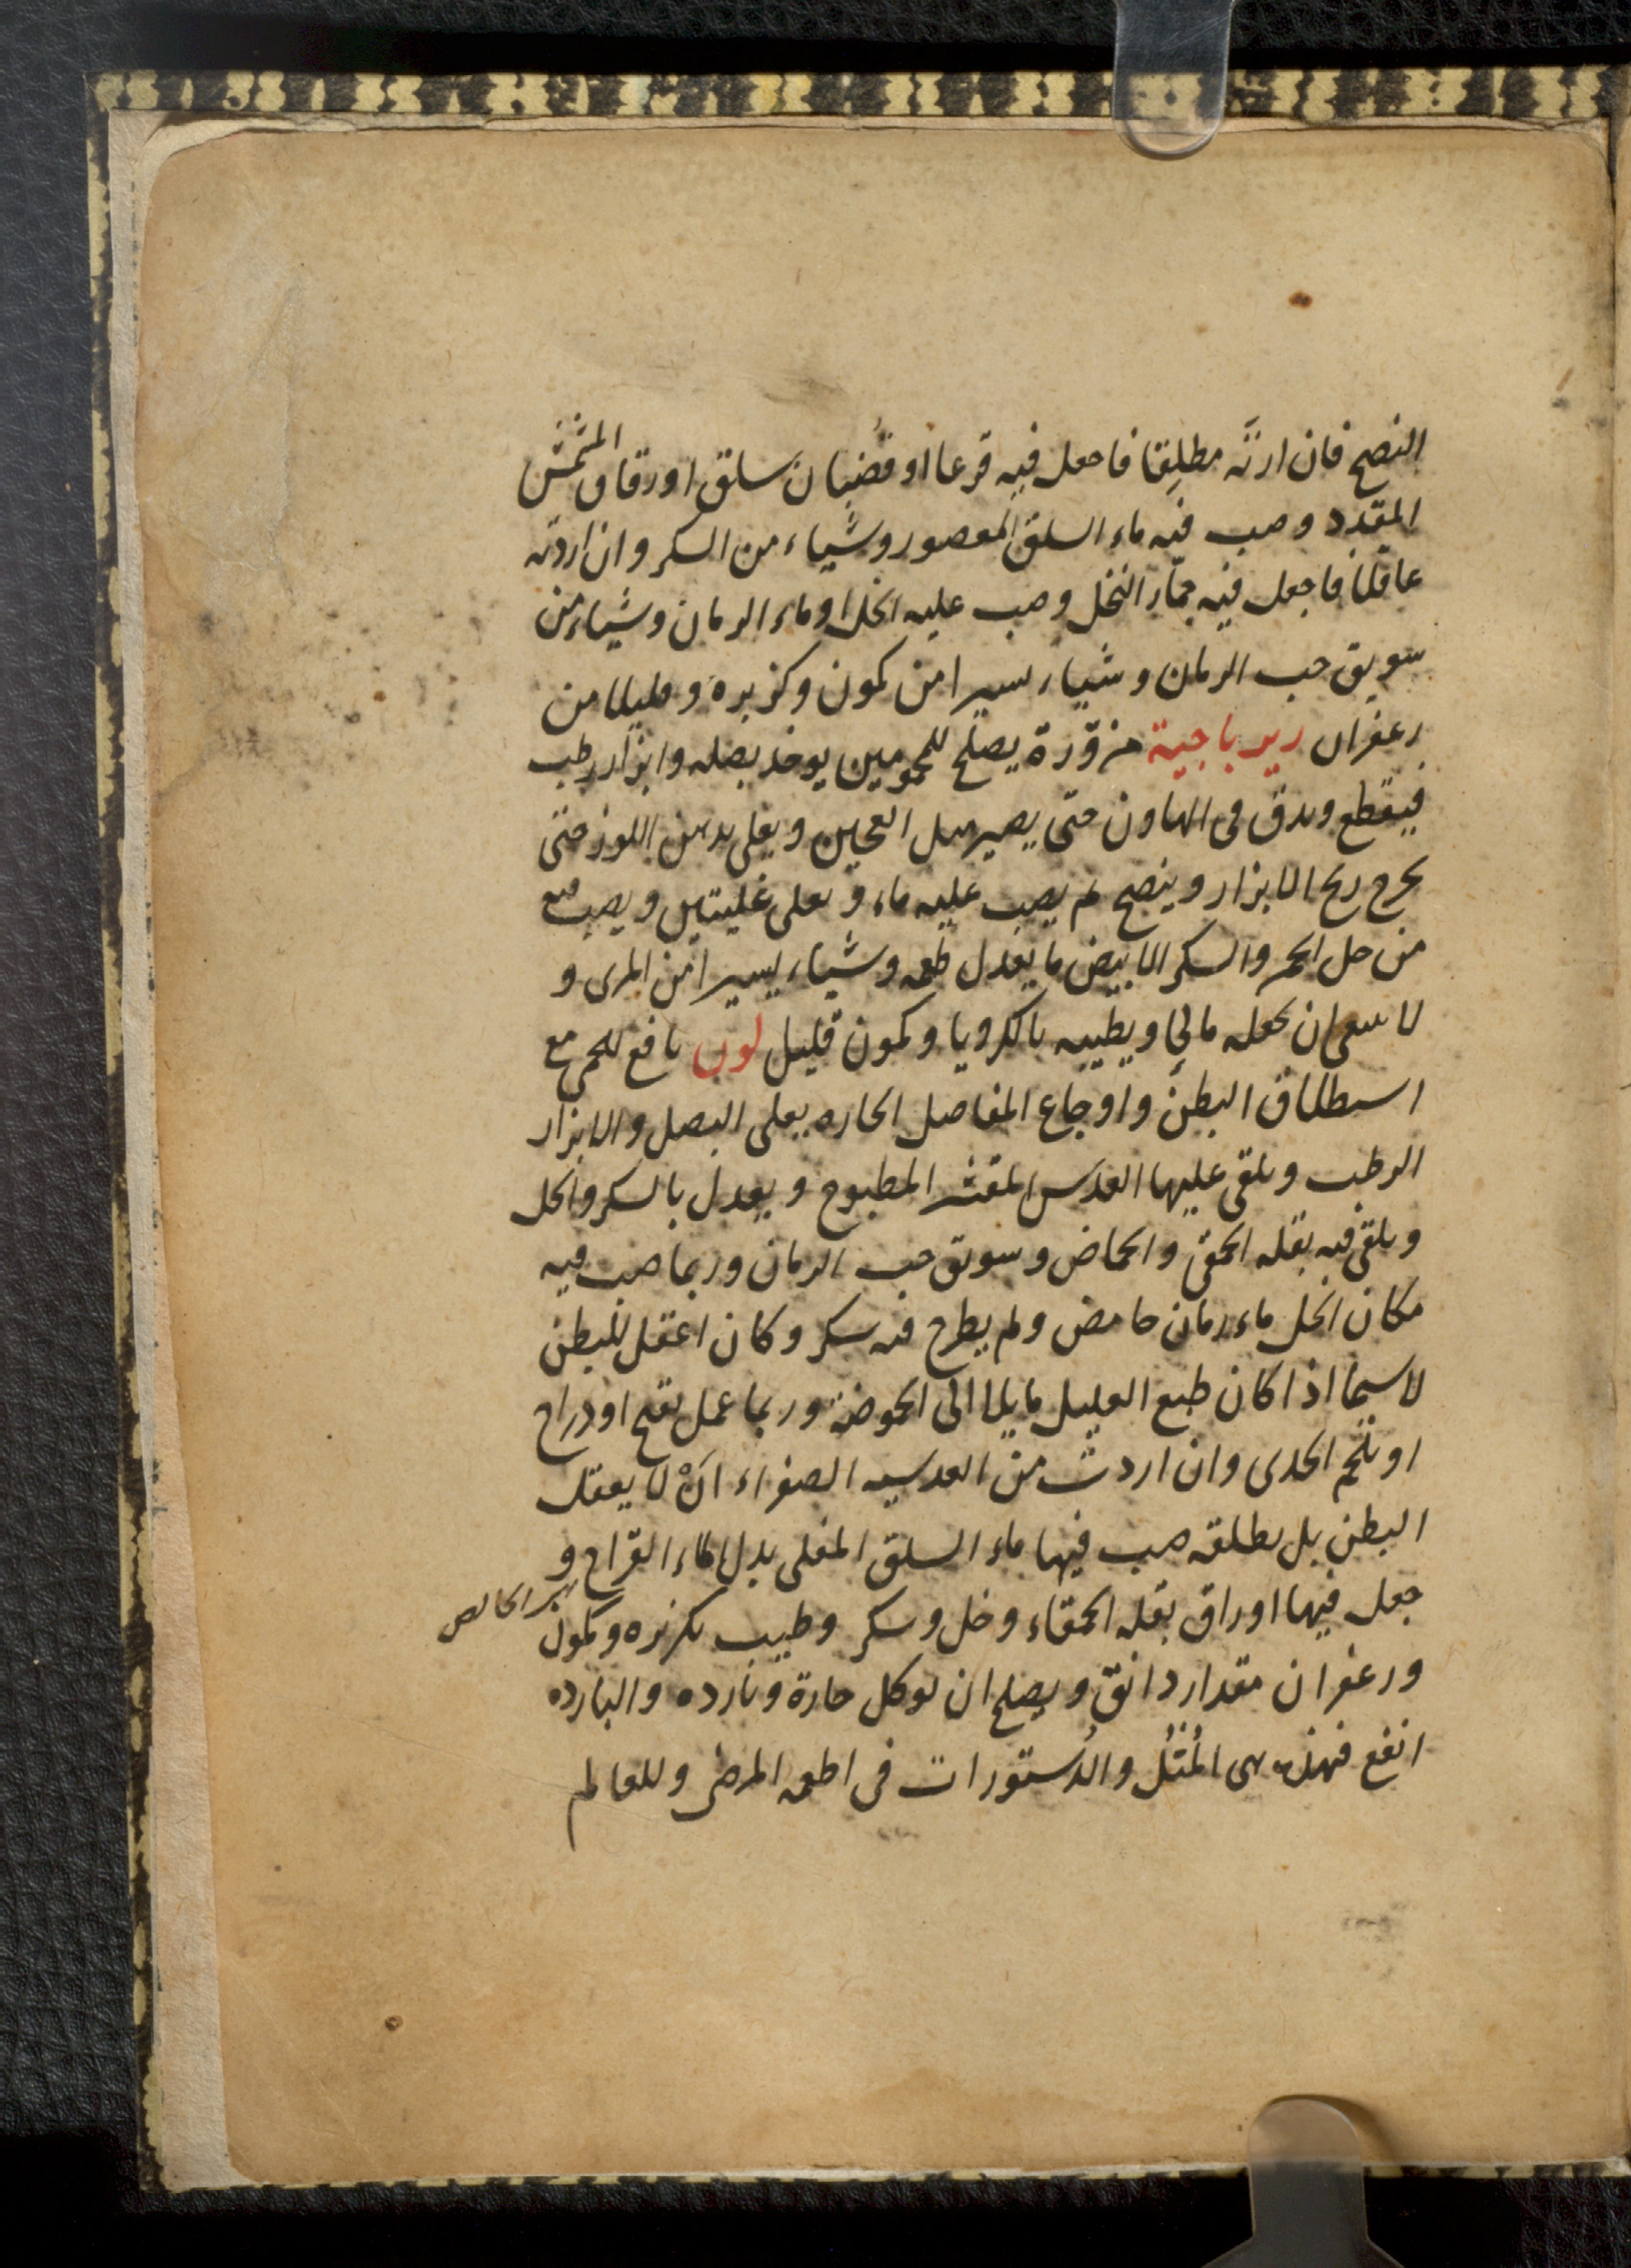 النضج فان اردتَه مطلِقا فاجعل فيه قرعا او قضُبان سلق او رقاق المشمش
المقدد وصب فيه ماء السلق المعصور وشياء من السكر وان اردته
عاقلا فاجعل فيه جمّار النخل وصب عليه الخل او ماء الرمان وشياء من
سويق حب الرمان وشياء يسيرا من كمون وكزبره وقليلا من
زعفران زيرباجية مزوّرة يصلح للمحمومين يوخذ بصله وابزار رطب
فيقطع ويدق فى الهاون حتى يصير مثل العجين ويغلى بدهن اللوز حتى
يخرج ريح الابزار وينضج ثم يصب عليه ماء ويغلى غليتين ويصب فيه
من خل الخمر والسكر الابيض ما يعدل طعمه وشياء يسيرا من المرى و
لا سعى ان يجعله مالحِا ويطيبه بالكرويا وكمون قليل لون نافع للحمى مع
استطلاق البطن واوجاع المفاصل الحاره يغلى البصل والابزار
الرطب ويلقى عليها العدس المقشر المطبوخ ويعدل بالسكر والخل
ويلقى فيه بقله الحمقى والحماض وسويق حب الرمان وربما صب فيه
مكان الخل ماء رمان حامض ولم يطرح فيه سكر وكان اعقل للبطن
لاسيما اذا كان طبع العليل مايلا الى الحموضه وربما عمل بقبج او دراج
او بلحم الجدى وان اردت من العدسيه الصفراء انْ لا يعقل
البطن بل يطلقه صب فيها ماء السلق المغلى بدل الماء القراح و
جعل فيها اوراق بقله الحمقاء وخل وسكر وطيب بكزبره وكمون
ورعفران مقدار دانق ويصلح ان يوكل حارة وبارده والبارده
انفع فهذه هى المُثُل والدُستورات فى اطعمه المرضى وللعالم